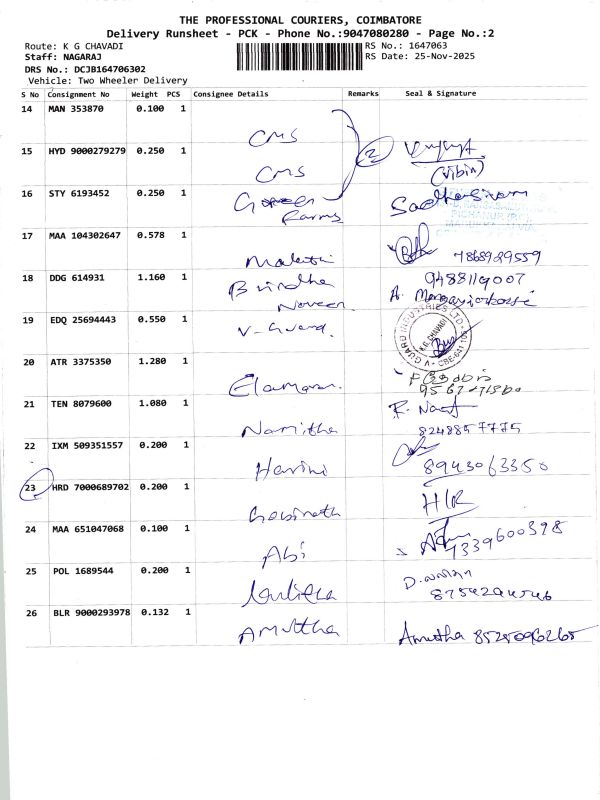 THE PROFESSIONAL COURIERS, COIMBATORE
Delivery Runsheet - PCK - Phone No.:9047080280 - Page No.:2
Route: K G CHAVADI
RS No.: 1647063
Staff: NAGARAJ
RS Date: 25-Nov-2025
DRS No.: DCJB164706302
Vehicle: Two Wheeler Delivery
S No Consignment No Weight PCS Consignee Details Remarks Seal & Signature
14 MAN 353870 0.100 1
CMS
15 HYD 9000279279 0.250 1
2
(Vibin)
CMS
16 STY 6193452 0.250 1
Green
Farms
17 MAA 104302647 0.578 1
7868929559
Malathi
18 DDG 614931 1.160 1
9488119007
Brindha
Naveen
19 EDQ 25694443 0.550 1
V-Guard
V GUARD INDUSTRIES LTD.
K.G. CHAVADI
20 ATR 3375350 1.280 1
Elamaran.
21 TEN 8079600 1.080 1
8248857775
Namitha
22 IXM 509351557 0.200 1
8943063350
Harini
23 HRD 7000689702 0.200 1
H/R
Gobinath
24 MAA 651047068 0.100 1
7339600398
Abi
25 POL 1689544 0.200 1
26 BLR 9000293978 0.132 1
Amuttha
Amutha 8525096265